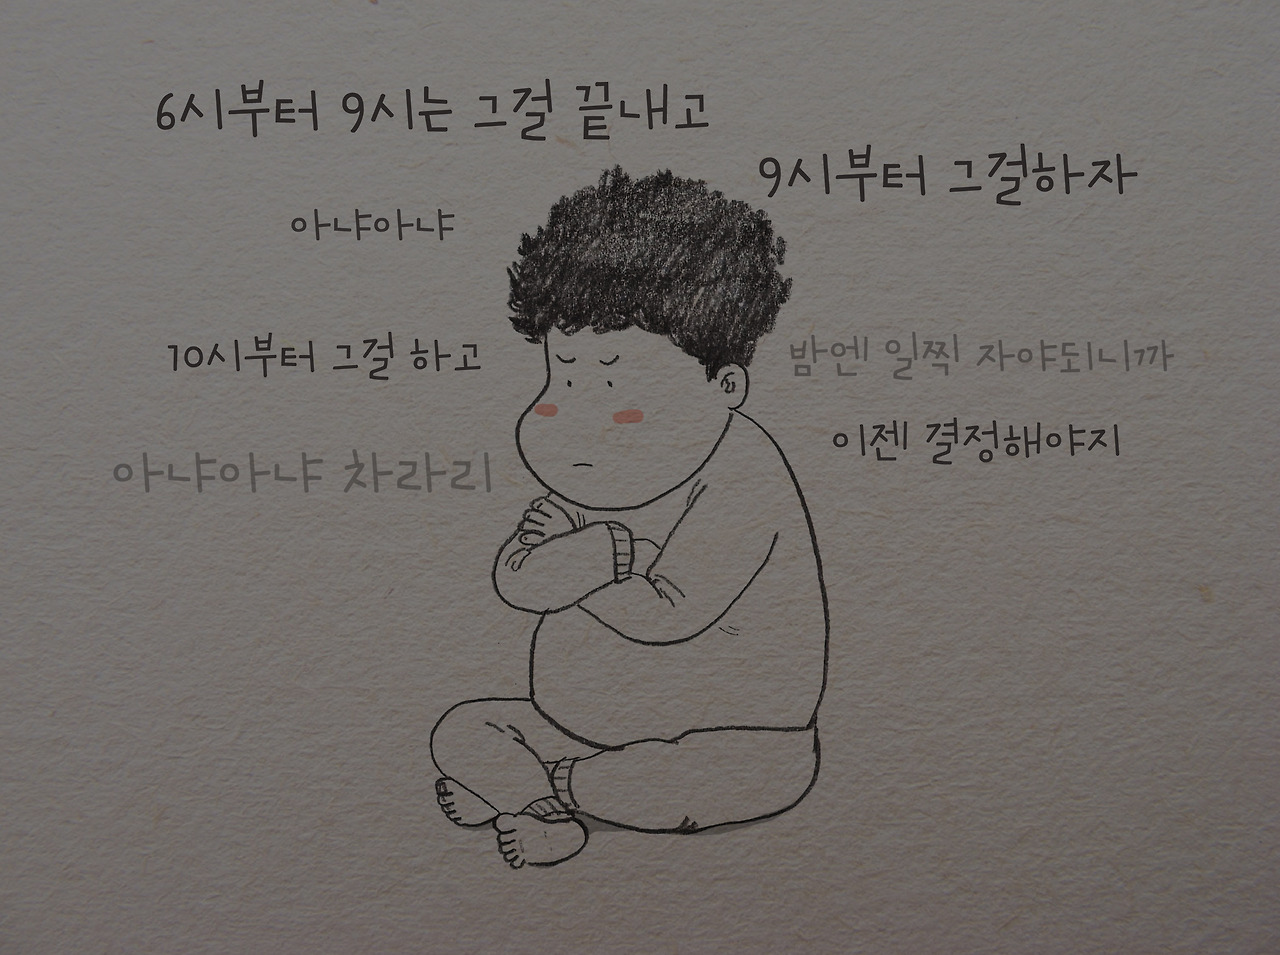 6시부터 9시는 그걸 끝내고
9시부터 그걸하자
아냐아냐
10시부터 그걸 하고
밤엔 일찍 자야되니까
이젠 결정해야지
아냐아냐 차라리